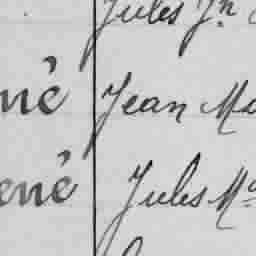 Jules Jn
né Jean Ma
ené Jules Ma